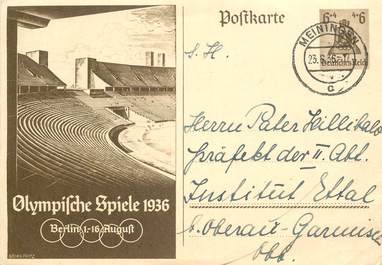 Postkarte
6+4 6+4
Deutsches Reich
MEININGEN
23.6.36-17
c
S. H.
Herrn Pater Willibald
Präfekt der II. Abt.
Institut Ettal
b. Oberau-Garmisch
Obb.
Olympische Spiele 1936
Berlin 1.-16. August